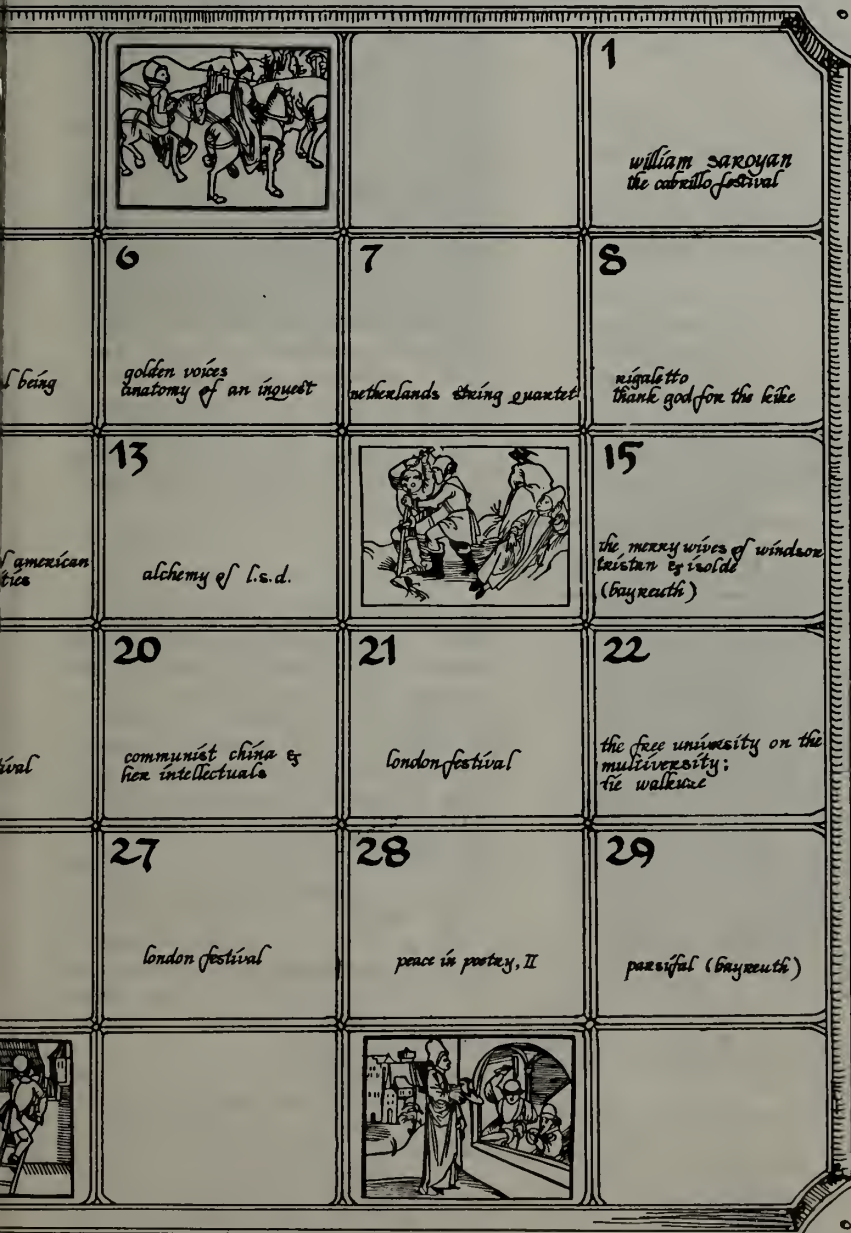 1
william saroyan
the cabrillo festival
6
7
8
l being
golden voices
anatomy of an inquest
netherlands string quartet
rigaletto
thank god for the kike
13
15
american
ties
alchemy of l.s.d.
the merry wives of windsor
tristan & isolde
(bayreuth)
20
21
22
ival
communist china &
her intellectuals
london festival
the free university on the
multiversity;
die walkure
27
28
29
london festival
peace in poetry, II
parsifal (bayreuth)